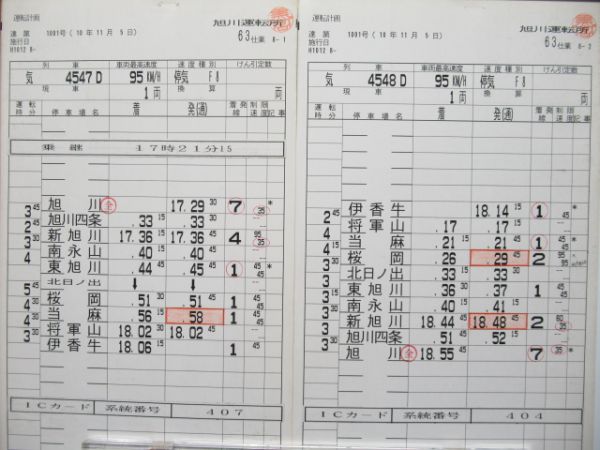 運転計画
旭川運転所
達第 1001号 ( 10年 11月 5日 )
施行日
H1012 B-
63仕業 B-1
列車 車両最高速度 速度種別 けん引定数
気 4547D 95KM/H 停気 F8
現車 換算
1両 両
運転時分 停車場名 着 発(通) 着発線 制限速度 記事
乗継 17時21分15
旭川 全 17.29 30 7 35 *
3 45 旭川四条 .33 15 .33 45
2 45 新旭川 17.36 15 17.36 45 4 95 35
3 30 南永山 .40 15 .40 45
東永山
東旭川 .44 45 .45 15 1 45 45 *
北日ノ出 ↓ ↓
5 45 桜岡 .51 30 .51 45 1 45
4 30 当麻 .56 15 .58 1 45
将軍山 18.02 30 18.02 45
3 30 伊香牛 18.06 15 1 45
ICカード 系統番号 407
運転計画
旭川運転所
達第 1001号 ( 10年 11月 5日 )
施行日
H1012 B-
63仕業 B-2
列車 車両最高速度 速度種別 けん引定数
気 4548D 95KM/H 停気 F8
現車 換算
1両 両
運転時分 停車場名 着 発(通) 着発線 制限速度 記事
伊香牛 18.14 15 1 45 *
将軍山 .17 .17 15
当麻 .21 15 .21 45 1 45 45 *
桜岡 .26 .29 45 2 95 95
北日ノ出 .33 15 .33 30
東旭川 .36 30 .37 1 45
南永山 .40 30 .41 15
新旭川 18.44 45 18.48 45 2 60 35
旭川四条 .51 45 .52 15
3 30 旭川 全 18.55 45 7 35 *
ICカード 系統番号 404